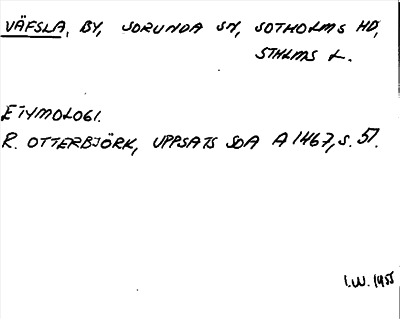 VÄFSLA, BY, SORUNDA SN, SOTHOLMS HD,
STHLMS L.
ETYMOLOGI.
R. OTTERBJÖRK, UPPSATS SOA A 1467, S. 57.
I.W. 1955